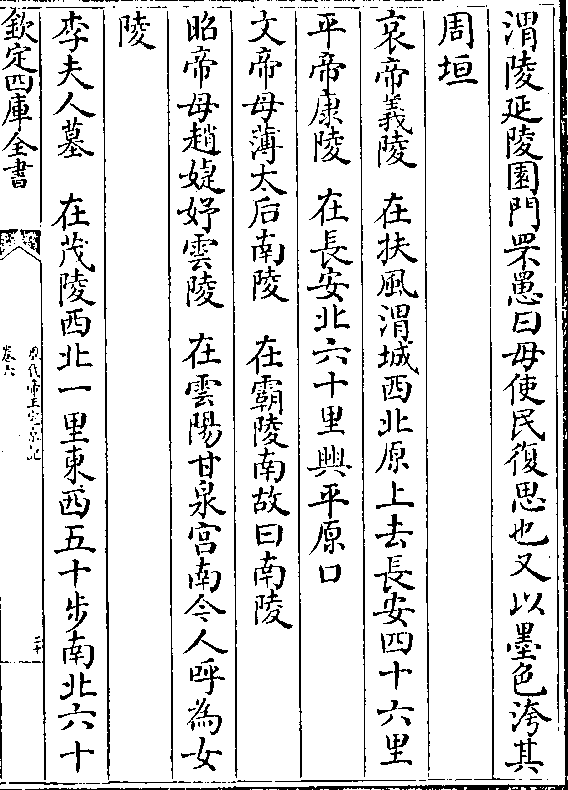 渭陵延陵園門罘罳曰毋使民復思也又以墨色洿其
周垣
哀帝義陵　在扶風渭城西北原上去長安四十六里
平帝康陵　在長安北六十里興平原口
文帝母薄太后南陵　在霸陵南故曰南陵
昭帝母趙婕妤雲陵　在雲陽甘泉宮南今人呼為女
陵
李夫人墓　在茂陵西北一里東西五十步南北六十
欽定四庫全書
歷代帝王宅京記
卷六
二十